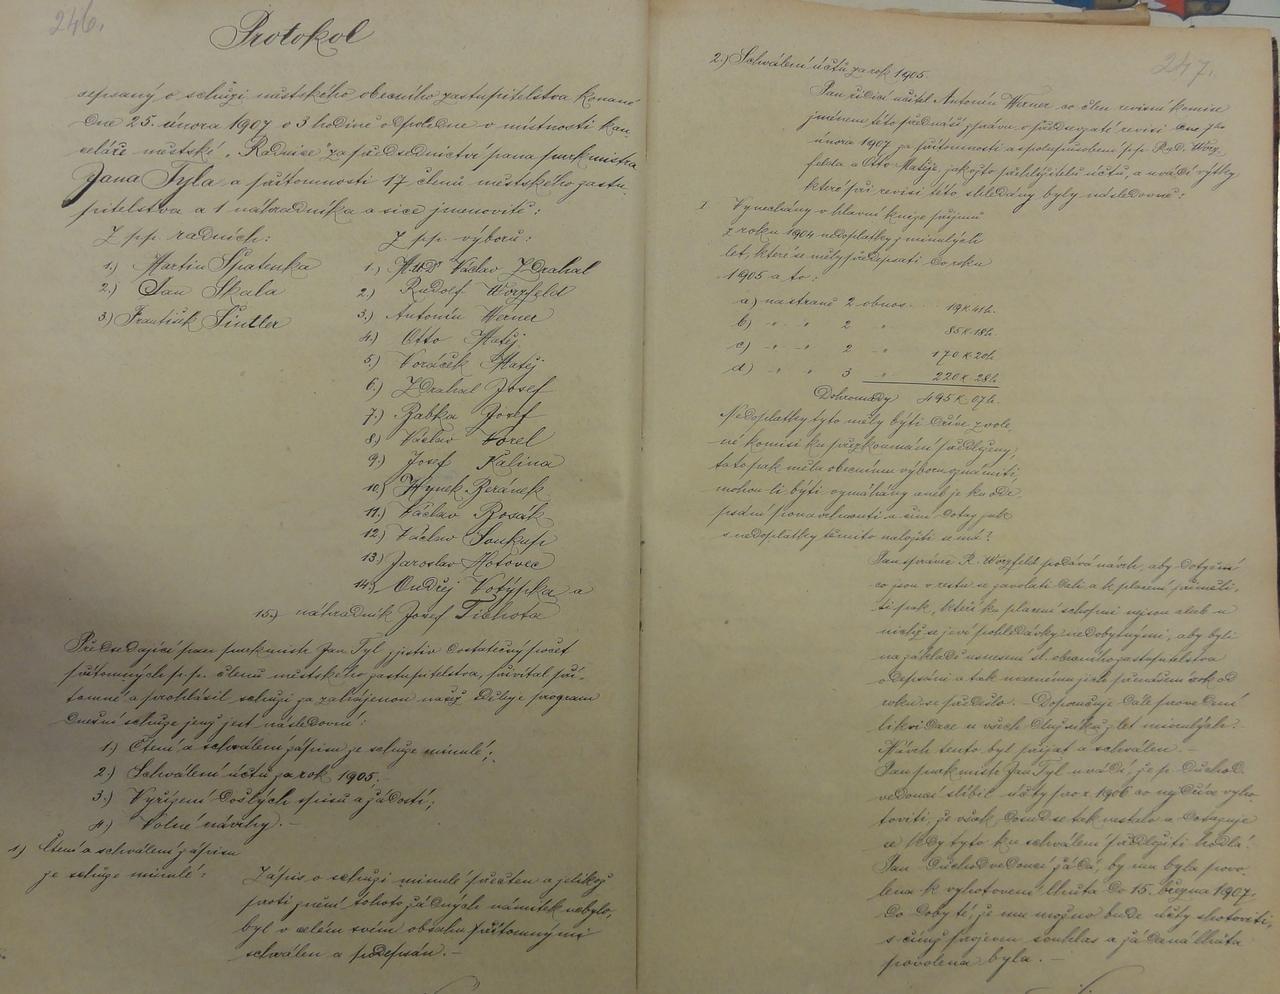 246.
Protokol
sepsaný o schůzi městského obecního zastupitelstva konané
dne 25. února 1907 o 3 hodině odpoledne v místnosti kan-
celáře městské „Radnice" za předsednictví pana purkmistra
Jana Tyla a přítomnosti 17 členů městského zastu-
pitelstva a 1 náhradníka a sice jmenovitě:
Z pp. radních:
1.) Martin Špatenka
2.) Jan Skala
3.) František Šintler
Z pp. výboru:
1.) MUDr Václav Zdrahal
2.) Rudolf Worzfeld
3.) Antonín Werner
4.) Otto Matěj
5.) Voráček Matěj
6.) Zdrahal Josef
7.) Babka Josef
8.) Václav Vorel
9.) Josef Kalina
10.) Hynek Beránek
11.) Václav Bosák
12.) Václav Soukup
13.) Jaroslav Hotovec
14.) Ondřej Votýpka a
15.) náhradník Josef Tichota
Předsedající pan purkmistr Jan Tyl zjistiv dostatečný počet
přítomných p.p. členů městského zastupitelstva, přivítal pří-
tomné a prohlásil schůzi za zahájenou načež sděluje program
dnešní schůze jenž jest následovní:
1.) Čtení a schválení zápisu ze schůze minulé;
2.) Schválení účtů za rok 1905.
3.) Vyřízení došlých spisů a žádostí;
4.) Volné návrhy. —
1.) Čtení a schválení zápisu
ze schůze minulé:
Zápis o schůzi minulé přečten a jelikož
proti znění tohoto žádných námitek nebylo,
byl v celém svém obsahu přítomnými
schválen a podepsán. —
247.
2.) Schválení účtů za rok 1905.
Pan řídící učitel Antonín Werner co člen revisní komise
jménem této přednáší zprávu o předsevzaté revisi dne 7ho
února 1907 za přítomnosti a spolupůsobení pp. Rud. Worz-
felda a Otto Matěje, jakožto přehlížitelů účtů, a uvádí výtky
které při revisi této shledány byly následovně:
I. Vynechány v hlavní knize příjmů
z roku 1904 nedoplatky z minulých
let, které se měly předepsati do roku
1905 a to:
a) na straně 2 obnos 19 K 41 h.
b) " " 2 " 85 K 18 h.
c) " " 2 " 170 K 20 h.
d) " " 3 " 220 K 28 h.
Dohromady 495 K 07 h.
Nedoplatky tyto měly býti dříve zvole-
né komisi ku přezkoumání předloženy,
tato pak měla obecnímu výboru oznámiti,
mohou-li býti vymáhány aneb je ku ode-
psání ponavrhnouti a činí dotaz jak
s nedoplatky těmito naložiti se má?
Pan správce R. Worzfeld podává návrh, aby dotyční
co jsou v restu se zavolati dali a k placení přiměli,
ti pak, kteří ku placení schopni nejsou aneb u
nichž se jeví pohledávky nedobytnými, aby byli
na základě usnesení sl. obecního zastupitelstva
odepsáni a tak neznámému jich přenášení rok od
roku se předešlo. — Doporučuje dále provedení
likvidace u všech dlužníků z let minulých. —
Návrh tento byl přijat a schválen. —
Pan purkmistr Jan Tyl uvádí, že p. důchod-
vedoucí slíbil účty pro r. 1906 co nejdříve vyho-
toviti, že však dosud se tak nestalo a dotazuje
se kdy tyto ku schválení předložiti hodlá.
Pan důchodvedoucí žádá, by mu byla povo-
lena k vyhotovení lhůta do 15. března 1907.
do doby té, že mu možno bude účty zhotoviti,
s čímž projeven souhlas a žádaná lhůta
povolena byla. —